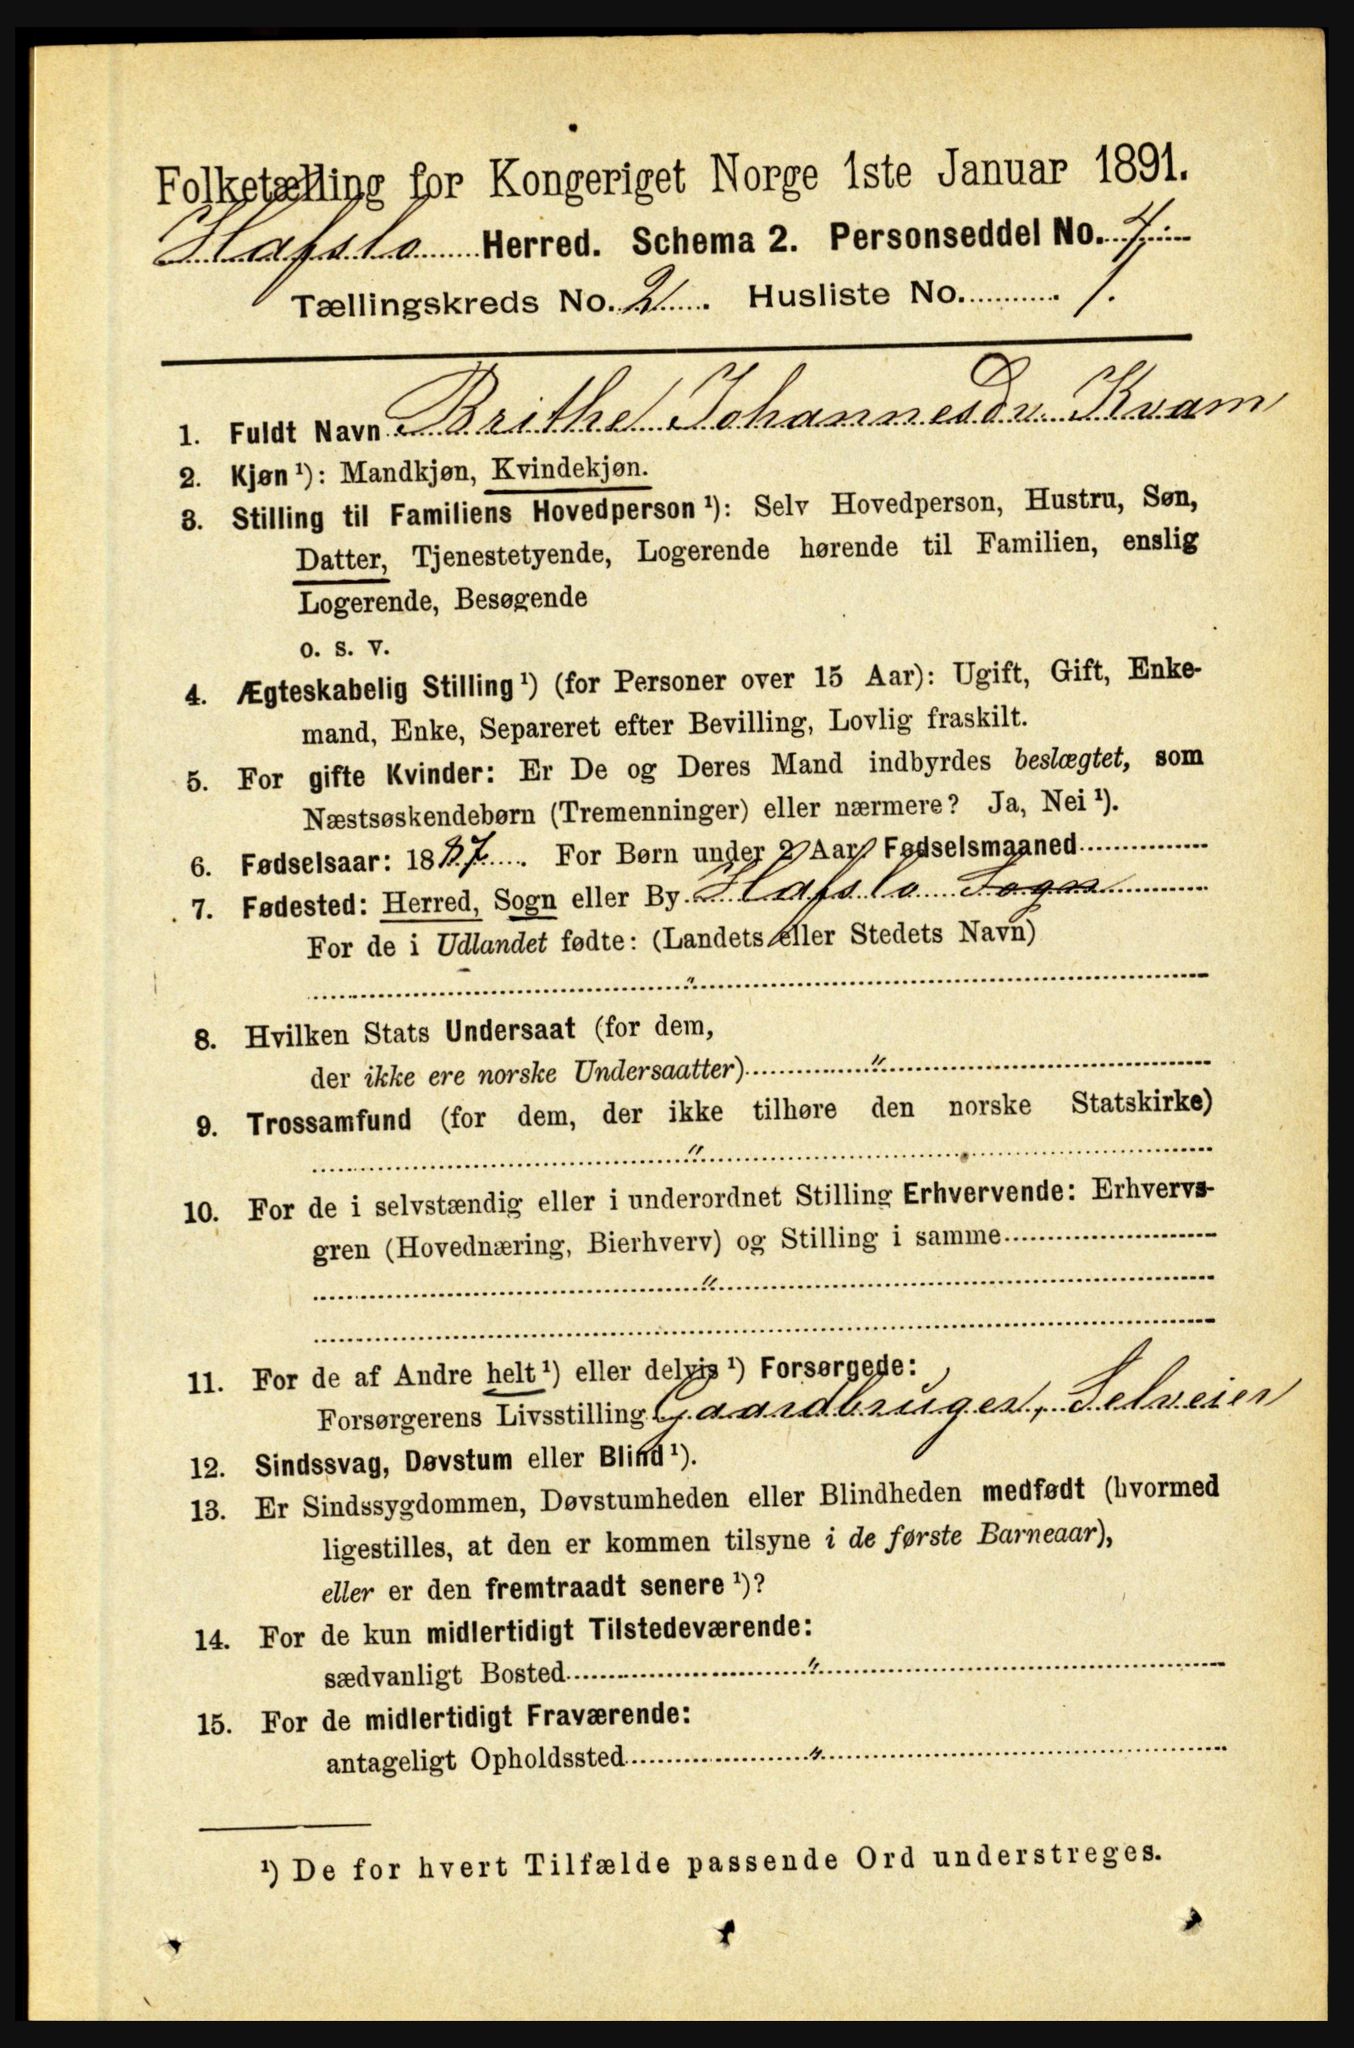 Folketælling for Kongeriget Norge 1ste Januar 1891.
Hafslo Herred. Schema 2. Personseddel No. 4.
Tællingskreds No. 2. Husliste No. 1.
1. Fuldt Navn Brithe Johannesdr. Kvam
2. Kjøn ¹): Mandkjøn, Kvindekjøn.
3. Stilling til Familiens Hovedperson ¹): Selv Hovedperson, Hustru, Søn,
Datter, Tjenestetyende, Logerende hørende til Familien, enslig
Logerende, Besøgende
o. s. v.
4. Ægteskabelig Stilling ¹) (for Personer over 15 Aar): Ugift, Gift, Enke-
mand, Enke, Separeret efter Bevilling, Lovlig fraskilt.
5. For gifte Kvinder: Er De og Deres Mand indbyrdes beslægtet, som
Næstsøskendebørn (Tremenninger) eller nærmere? Ja, Nei ¹).
6. Fødselsaar: 1887. For Børn under 2 Aar: Fødselsmaaned
7. Fødested: Herred, Sogn eller By Hafslo Sogn
For de i Udlandet fødte: (Landets eller Stedets Navn)
"
8. Hvilken Stats Undersaat (for dem,
der ikke ere norske Undersaatter) "
9. Trossamfund (for dem, der ikke tilhøre den norske Statskirke)
"
10. For de i selvstændig eller i underordnet Stilling Erhvervende: Erhvervs-
gren (Hovednæring, Bierhverv) og Stilling i samme
"
11. For de af Andre helt ¹) eller delvis ¹) Forsørgede:
Forsørgerens Livsstilling Gaardbruger, Selveier
12. Sindssvag, Døvstum eller Blind ¹).
13. Er Sindssygdommen, Døvstumheden eller Blindheden medfødt (hvormed
ligestilles, at den er kommen tilsyne i de første Barneaar),
eller er den fremtraadt senere ¹)?
14. For de kun midlertidigt Tilstedeværende:
sædvanligt Bosted "
15. For de midlertidigt Fraværende:
antageligt Opholdssted "
¹) De for hvert Tilfælde passende Ord understreges.